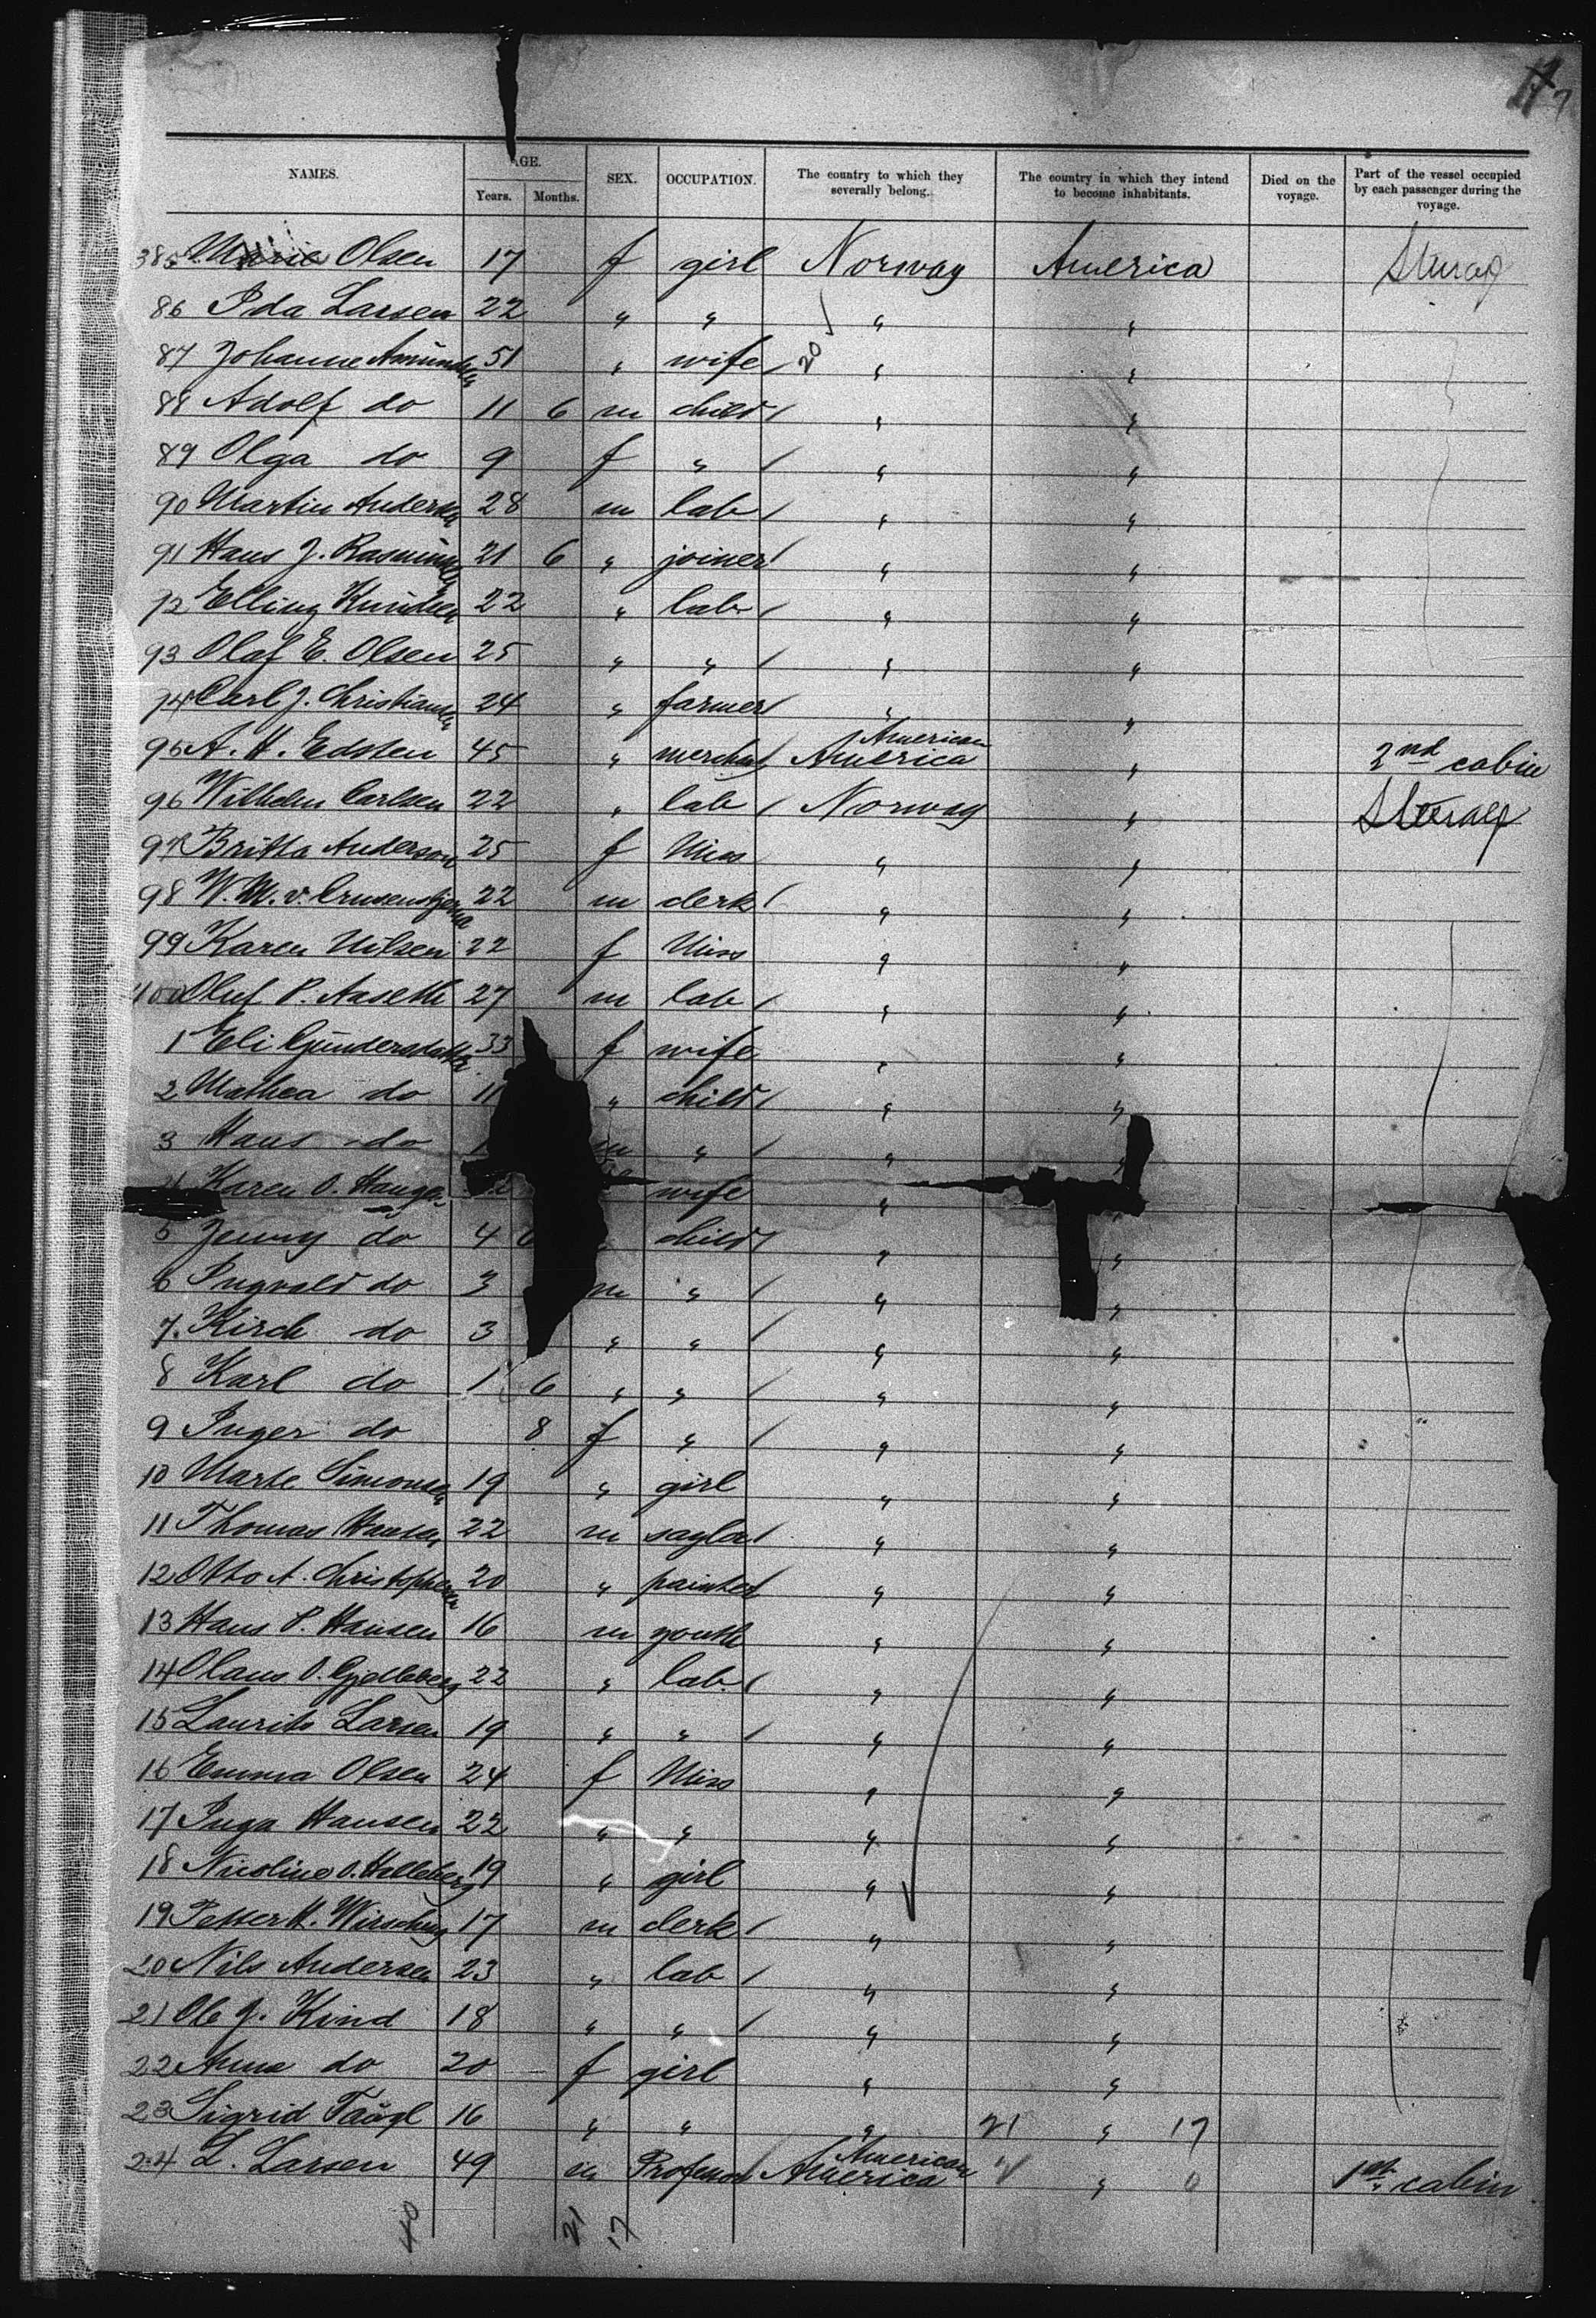 7
NAMES. AGE. SEX. OCCUPATION. The country to which they severally belong. The country in which they intend to become inhabitants. Died on the voyage. Part of the vessel occupied by each passenger during the voyage.
Years. Months.
385 Marie Olsen 17 f girl Norway America Steerag
86 Ida Larsen 22 " " " "
87 Johanne Amundsen 51 " wife 20 " "
88 Adolf do 11 6 m child " "
89 Olga do 9 f " " "
90 Martin Andersen 28 m lab " "
91 Hans J. Rasmussen 21 6 " joiner " "
92 Elling Knudsen 22 " lab " "
93 Olaf E. Olsen 25 " " " "
94 Carl J. Christiansen 24 " farmer " "
95 A. H. Edsten 45 " merchant America American " 2nd cabin
96 Wilhelm Carlsen 22 " lab Norway " Steerag
97 Britta Anderson 25 f Miss " "
98 W. M. v. Crusenstjerna 22 m clerk " "
99 Karen Nilsen 22 f Miss " "
400 Oluf P. Aaseth 27 m lab " "
1 Eli Gundersdatter 33 f wife " "
2 Mathea do 11 " child " "
3 Hans do m " " "
4 Karen O. Haugen wife " "
5 Jenny do 4 child " "
6 Ingvald do 3 m " " "
7. Kirch do 3 " " " "
8 Karl do 1 6 " " " "
9 Inger do 8 f " " "
10 Marte Simonsen 19 " girl " "
11 Thomas Hansen 22 m saylor " "
12 Otto A. Christophersen 20 " painter " "
13 Hans P. Hansen 16 m youth " "
14 Olaus O. Gjelleberg 22 " lab. " "
15 Laurits Larsen 19 " " " "
16 Emma Olsen 24 f Miss " "
17 Inga Hansen 22 " " " "
18 Nicoline O. Helleberg 19 " girl " "
19 Petter H. Wirsching 17 m clerk " "
20 Nils Andersen 23 " lab " "
21 Ole J. Kind 18 " " " "
22 Anna do 20 f girl " "
23 Sigrid 16 " " " 21 " 17
24 L. Larsen 49 m Professor America American " 1st cabin
40 21 17